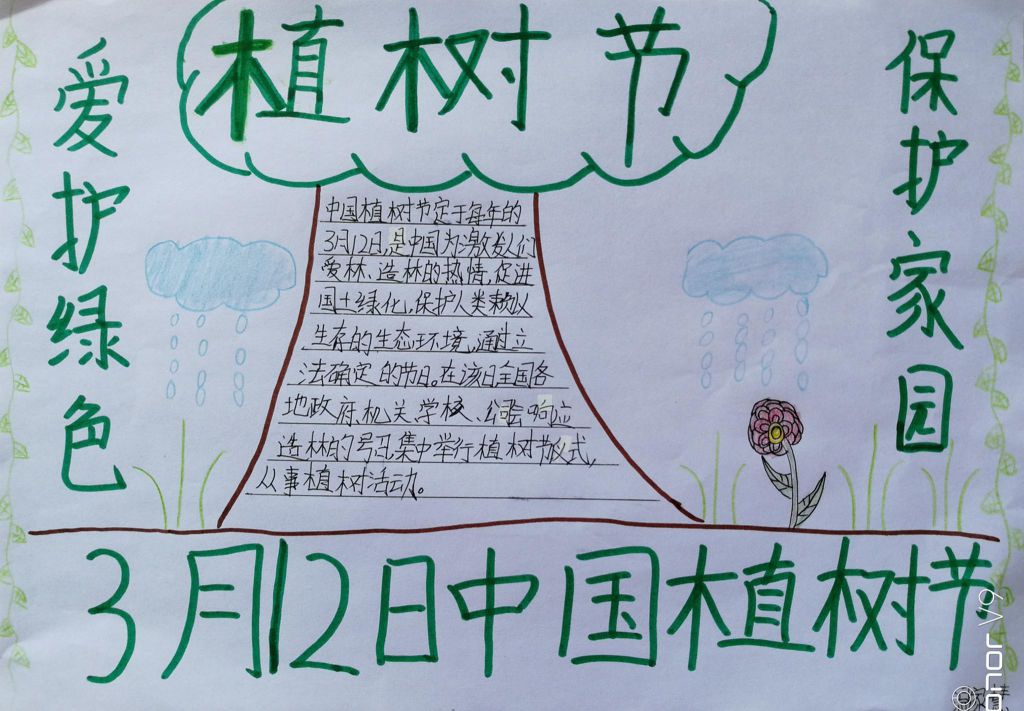 植树节
爱护绿色
保护家园
中国植树节定于每年的
3月12日,是中国为激发人们
爱林、造林的热情,促进
国土绿化,保护人类赖以
生存的生态环境,通过立
法确定的节日。在该日全国各
地政府、机关、学校、公司会响应
造林的号召集中举行植树节仪式,
从事植树活动。
3月12日中国植树节
onor V9